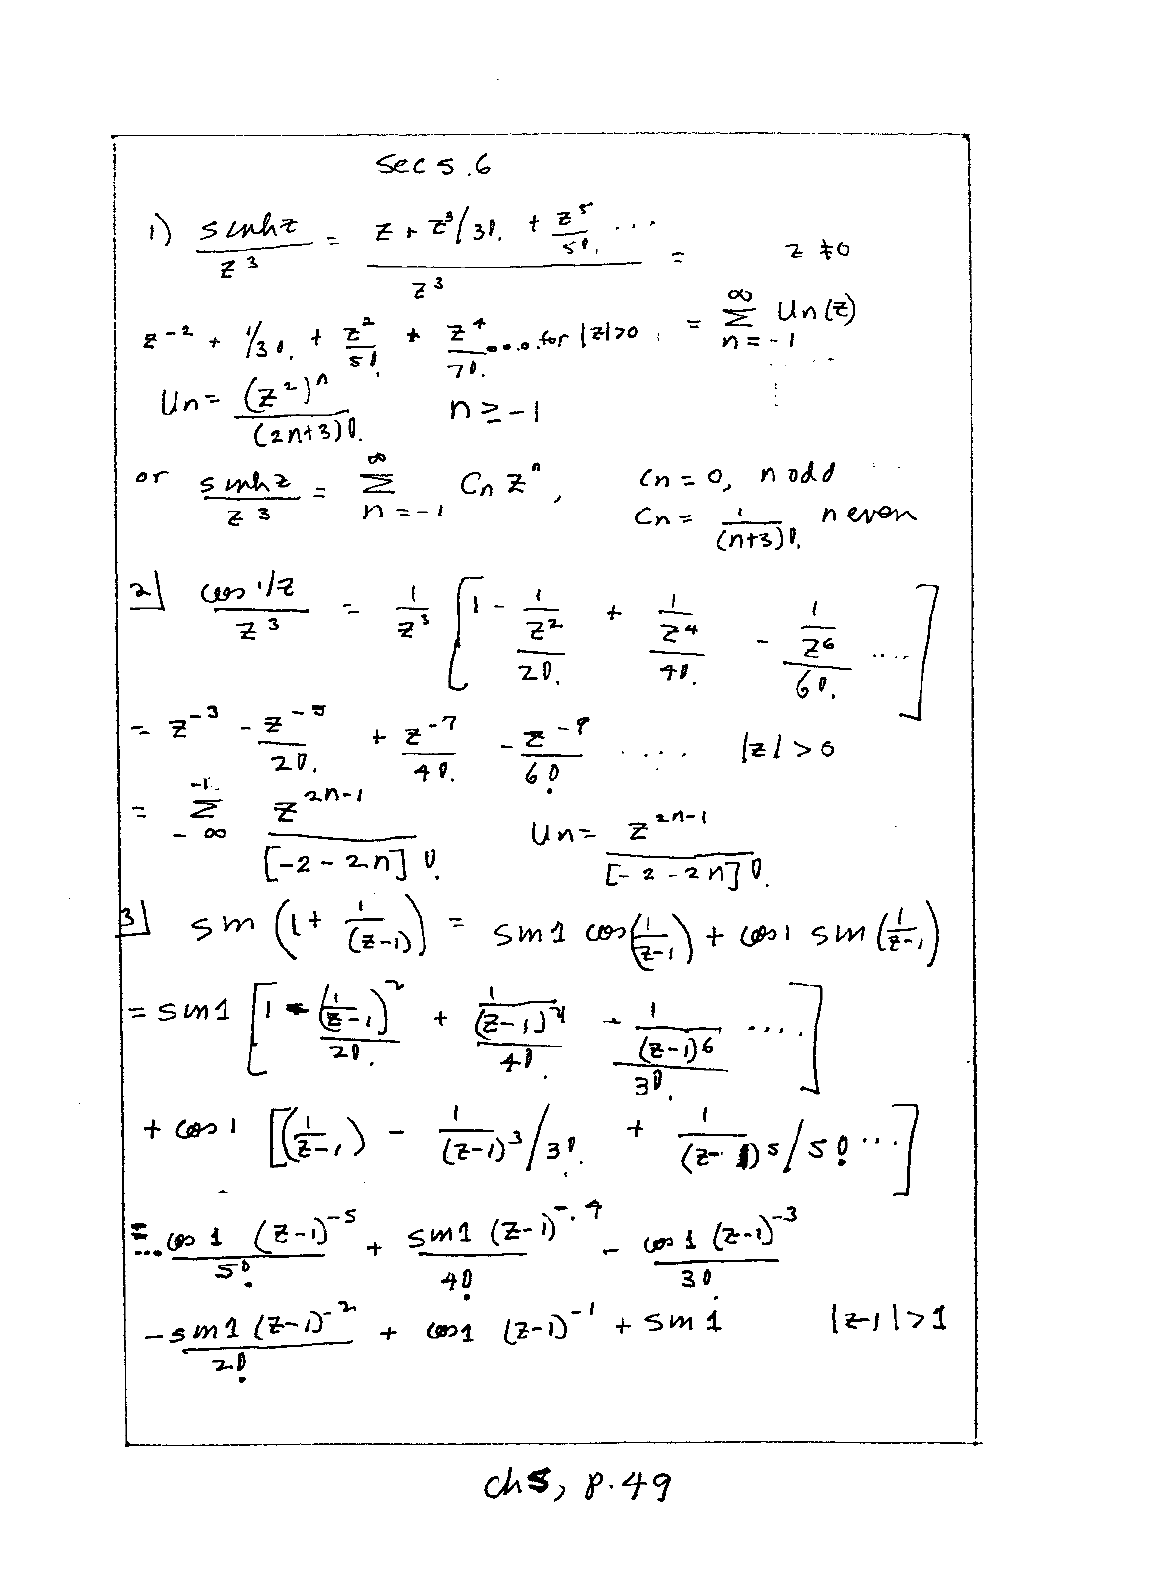 Sec 5.6
1) sinh z / z³ = (z + z³/3! + z⁵/5! ...) / z³ = z ≠ 0
z⁻² + 1/3! + z²/5! + z⁴/7! .... for |z|>0 = ∑_{n=-1}^{∞} Un(z)
Un = (z²)ⁿ / (2n+3)! n ≥ -1
or sinh z / z³ = ∑_{n=-1}^{∞} Cn zⁿ, Cn = 0, n odd
Cn = 1/(n+3)! n even
2) cos 1/z / z³ = 1/z³ [1 - (1/z²)/2! + (1/z⁴)/4! - (1/z⁶)/6! ....]
= z⁻³ - z⁻⁵/2! + z⁻⁷/4! - z⁻⁹/6! .... |z| > 0
= ∑_{-∞}^{-1} z^{2n-1} / [-2-2n]! Un = z^{2n-1} / [-2-2n]!
3) sin (1 + 1/(z-1)) = sin1 cos(1/(z-1)) + cos1 sin(1/(z-1))
= sin1 [1 - (1/(z-1))²/2! + (1/(z-1)⁴)/4! - (1/(z-1)⁶)/3! ....]
+ cos1 [(1/(z-1)) - 1/(z-1)³/3! + 1/(z-1)⁵/5! ...]
= ... cos1 (z-1)⁻⁵/5! + sin1 (z-1)⁻⁴/4! - cos1 (z-1)⁻³/3!
- sin1 (z-1)⁻²/2! + cos1 (z-1)⁻¹ + sin1 |z-1|>1
ch5, p.49